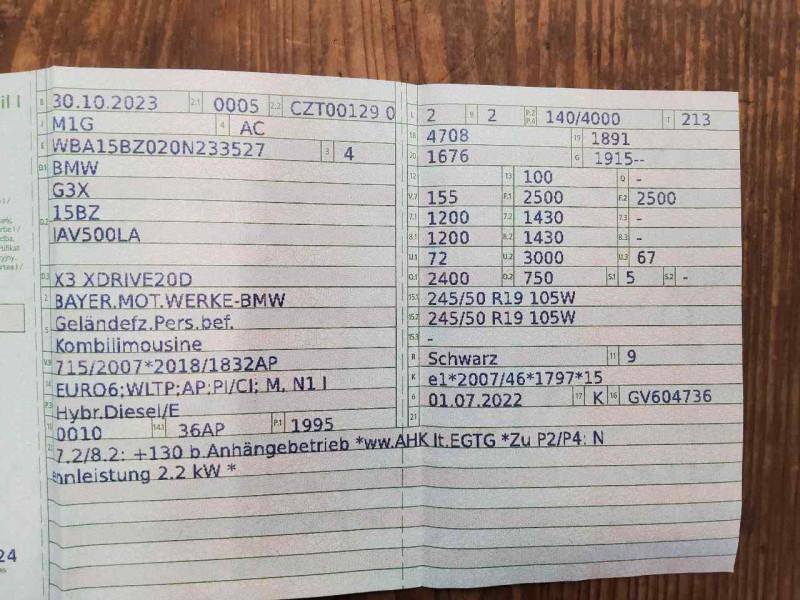 il I
B 30.10.2023 2.1 0005 2.2 CZT00129 0
J M1G 4 AC
E WBA15BZ020N233527 3 4
D.1 BMW
G3X
D.2 15BZ
IAV500LA
D.3 X3 XDRIVE20D
2 BAYER.MOT.WERKE-BMW
5 Geländefz.Pers.bef.
Kombilimousine
V.9 715/2007*2018/1832AP
14 EURO6;WLTP;AP;PI/CI; M, N1 I
P.3 Hybr.Diesel/E
10 0010 14.1 36AP P.1 1995
22 7.2/8.2: +130 b.Anhängebetrieb *ww.AHK lt.EGTG *Zu P2/P4: N
ennleistung 2.2 kW *
L 2 9 2 P.2 P.4 140/4000 T 213
18 4708 19 1891
20 1676 G 1915--
12 13 100 Q -
V.7 155 F.1 2500 F.2 2500
7.1 1200 7.2 1430 7.3 -
8.1 1200 8.2 1430 8.3 -
U.1 72 U.2 3000 U.3 67
O.1 2400 O.2 750 S.1 5 S.2 -
15.1 245/50 R19 105W
15.2 245/50 R19 105W
15.3 -
R Schwarz 11 9
K e1*2007/46*1797*15
6 01.07.2022 17 K 16 GV604736
21
24